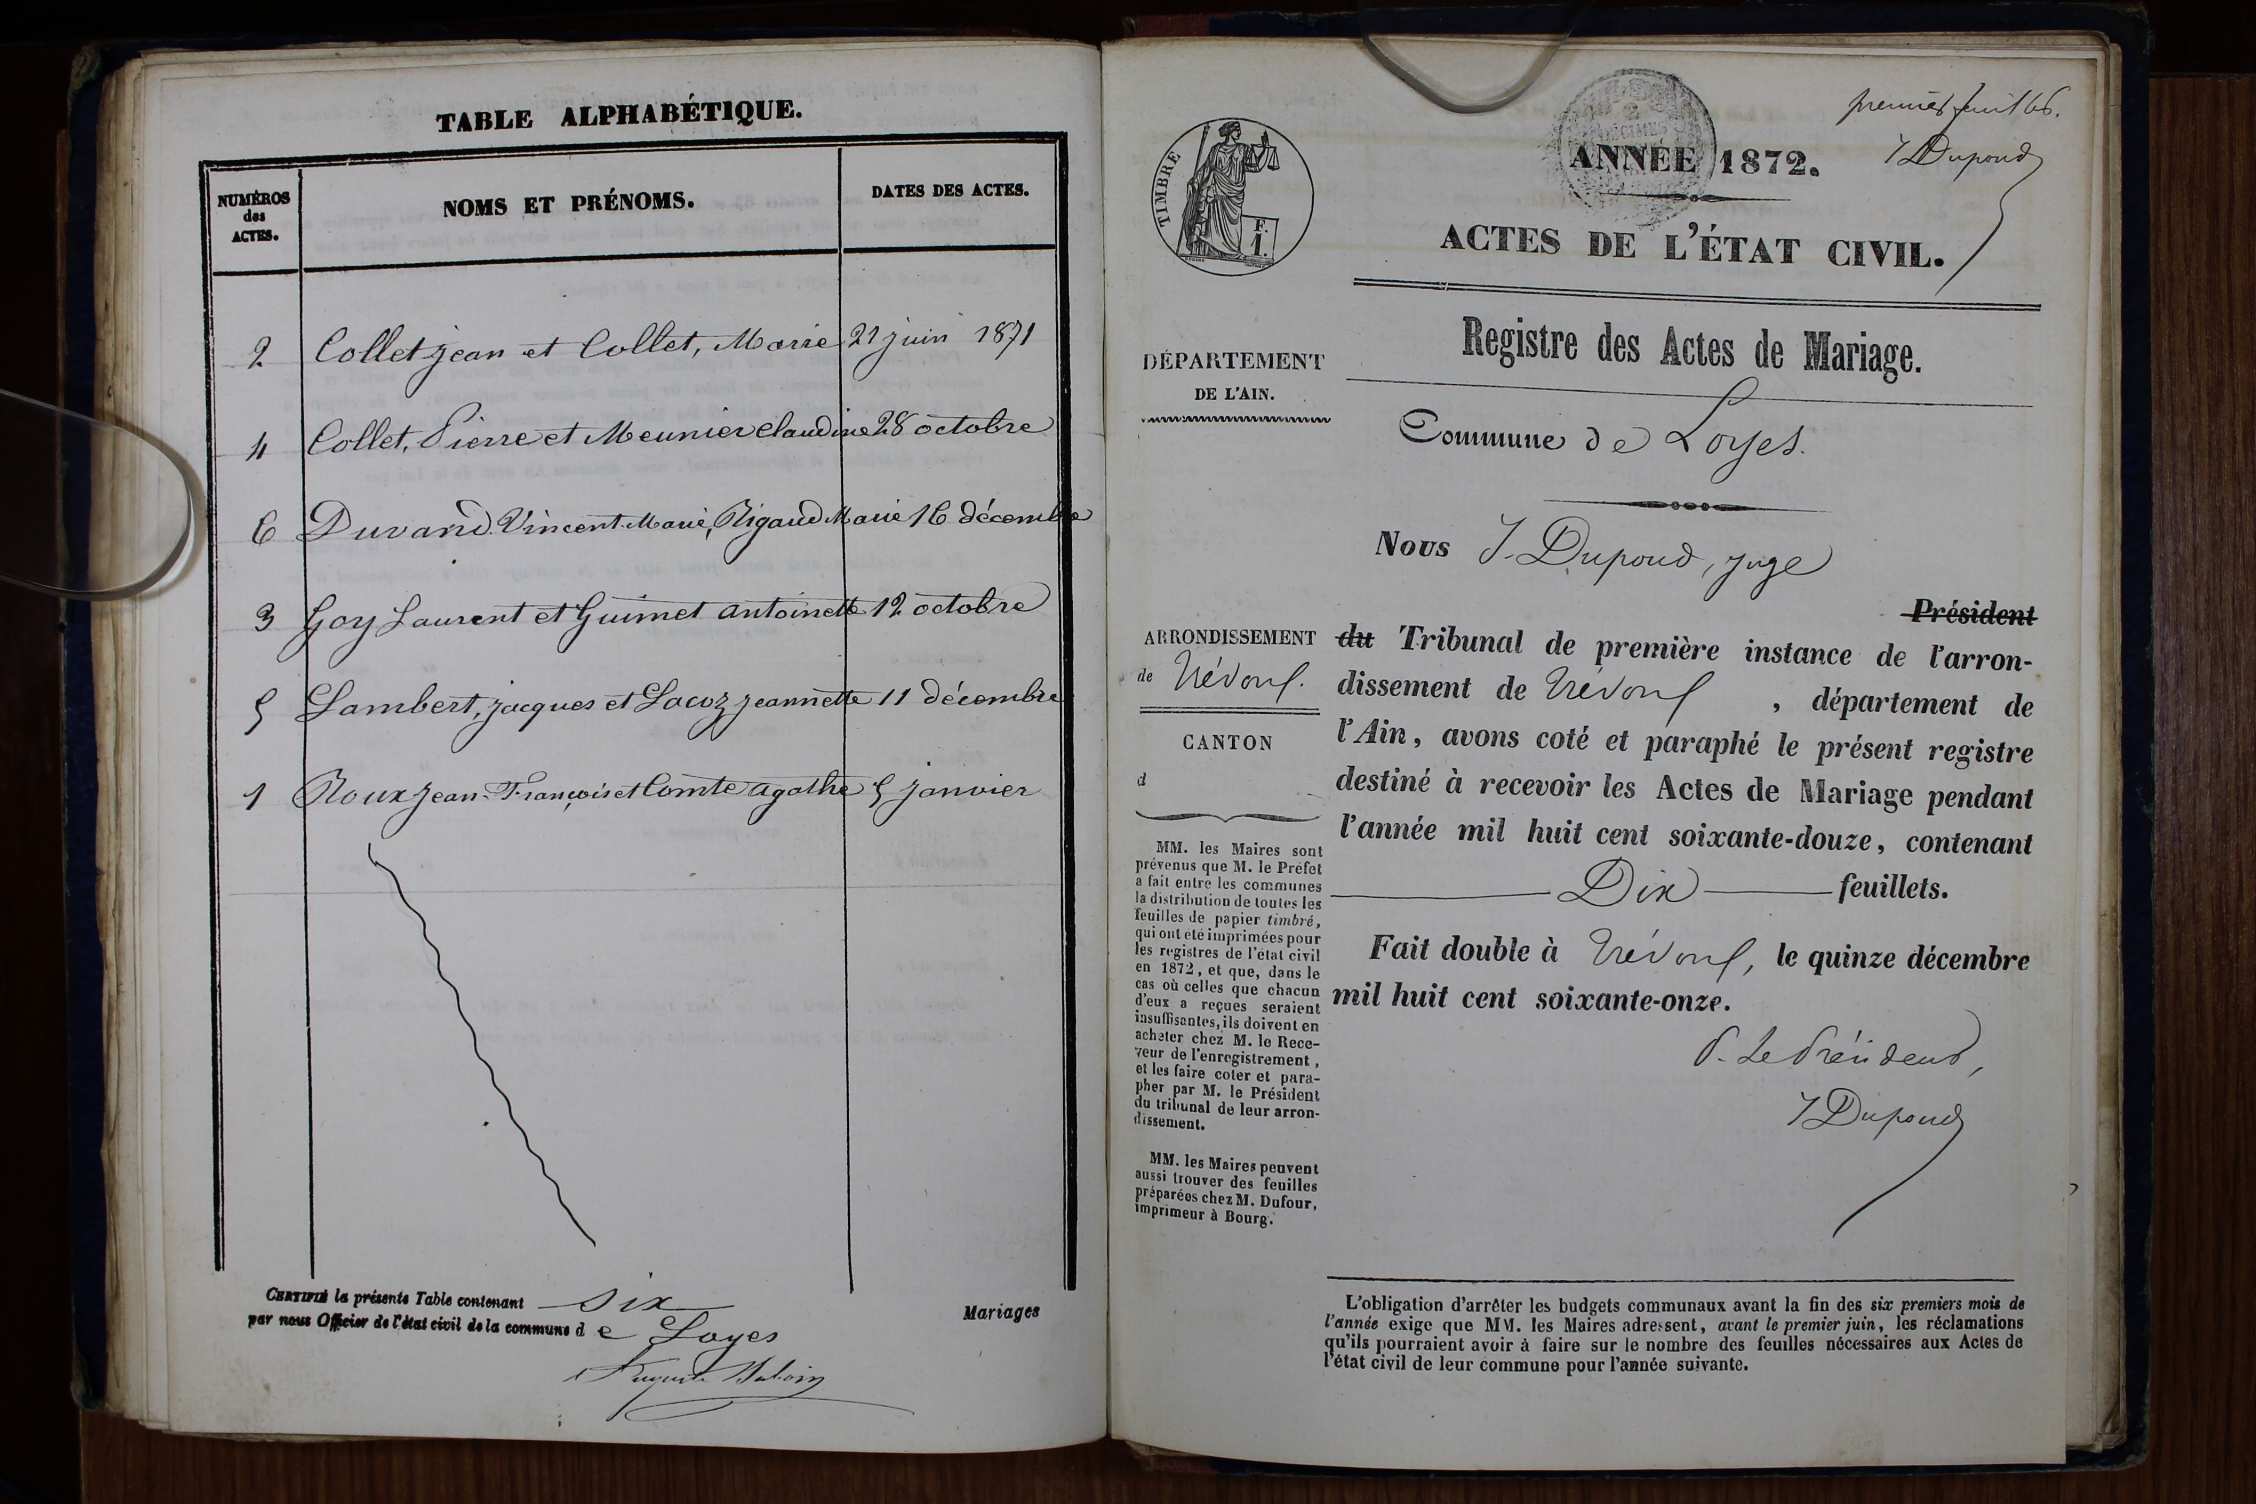 TABLE ALPHABÉTIQUE.
NUMÉROS
des
ACTES.
NOMS ET PRÉNOMS.
DATES DES ACTES.
2 Collet jean et Collet, Marie 21 juin 1871
4 Collet, Pierre et Meunier claudine 28 octobre
6 Duvand Vincent Marie, Rigaud Marie 16 décembre
3 Goy Laurent et Guimet antoinette 12 octobre
5 Lambert, jacques et Lacoz jeannette 11 décembre
1 Roux jean-François et Comte agathe 5 janvier
CERTIFIÉ la présente Table contenant six
par nous Officier de l'état civil de la commune de Loyes
Mariages
premier feuillet.
J Dupond
TIMBRE
F.
1.
ANNÉE 1872.
ACTES DE L'ÉTAT CIVIL.
Registre des Actes de Mariage.
DÉPARTEMENT
DE L'AIN.
Commune de Loyes.
Nous J. Dupond, juge
Président
ARRONDISSEMENT
de Trévoux.
CANTON
d
du Tribunal de première instance de l'arron-
dissement de Trévoux, département de
l'Ain, avons coté et paraphé le présent registre
destiné à recevoir les Actes de Mariage pendant
l'année mil huit cent soixante-douze, contenant
Dix feuillets.
Fait double à Trévoux, le quinze décembre
mil huit cent soixante-onze.
P. Le Président,
J Dupond
MM. les Maires sont
prévenus que M. le Préfet
a fait entre les communes
la distribution de toutes les
feuilles de papier timbré,
qui ont été imprimées pour
les registres de l'état civil
en 1872, et que, dans le
cas où celles que chacun
d'eux a reçues seraient
insuffisantes, ils doivent en
acheter chez M. le Rece-
veur de l'enregistrement,
et les faire coter et para-
pher par M. le Président
du tribunal de leur arron-
dissement.
MM. les Maires peuvent
aussi trouver des feuilles
préparées chez M. Dufour,
imprimeur à Bourg.
L'obligation d'arrêter les budgets communaux avant la fin des six premiers mois de
l'année exige que MM. les Maires adressent, avant le premier juin, les réclamations
qu'ils pourraient avoir à faire sur le nombre des feuilles nécessaires aux Actes de
l'état civil de leur commune pour l'année suivante.